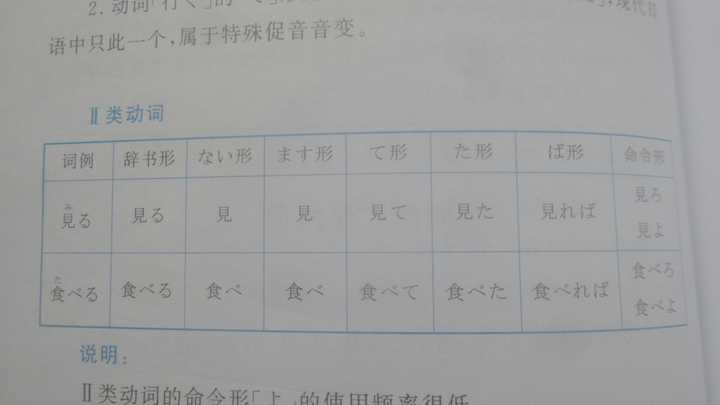 2. 动词「行く」的
现代日
语中只此一个,属于特殊促音音变。
Ⅱ类动词
词例 辞书形 ない形 ます形 て形 た形 ば形 命令形
み
見る 見る 見 見 見て 見た 見れば 見ろ
見よ
た
食べる 食べる 食べ 食べ 食べて 食べた 食べれば 食べろ
食べよ
说明:
Ⅱ类动词的命令形「よ」的使用频率很低